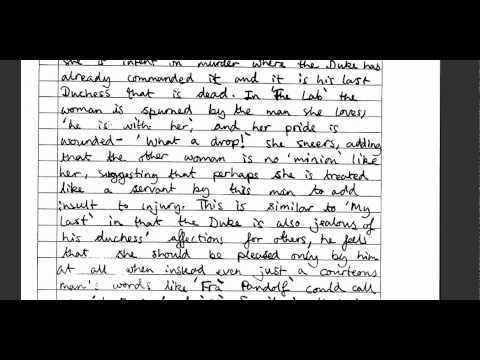 she is intent in murder where the Duke has
already commanded it and it is his last
Duchess that is dead. In 'The Lab' the
woman is spurned by the man she loves,
'he is with her', and her pride is
wounded - 'What a drop!' she sneers, adding
that the other woman is no 'minion' like
her, suggesting that perhaps she is treated
like a servant by this man to add
insult to injury. This is similar to 'My
Last' in that the Duke is also jealous of
his duchess' affections for others, he feels
that she should be pleased only by him
at all when insead even just a courteous
man's words like 'Fra Pandolf' could call